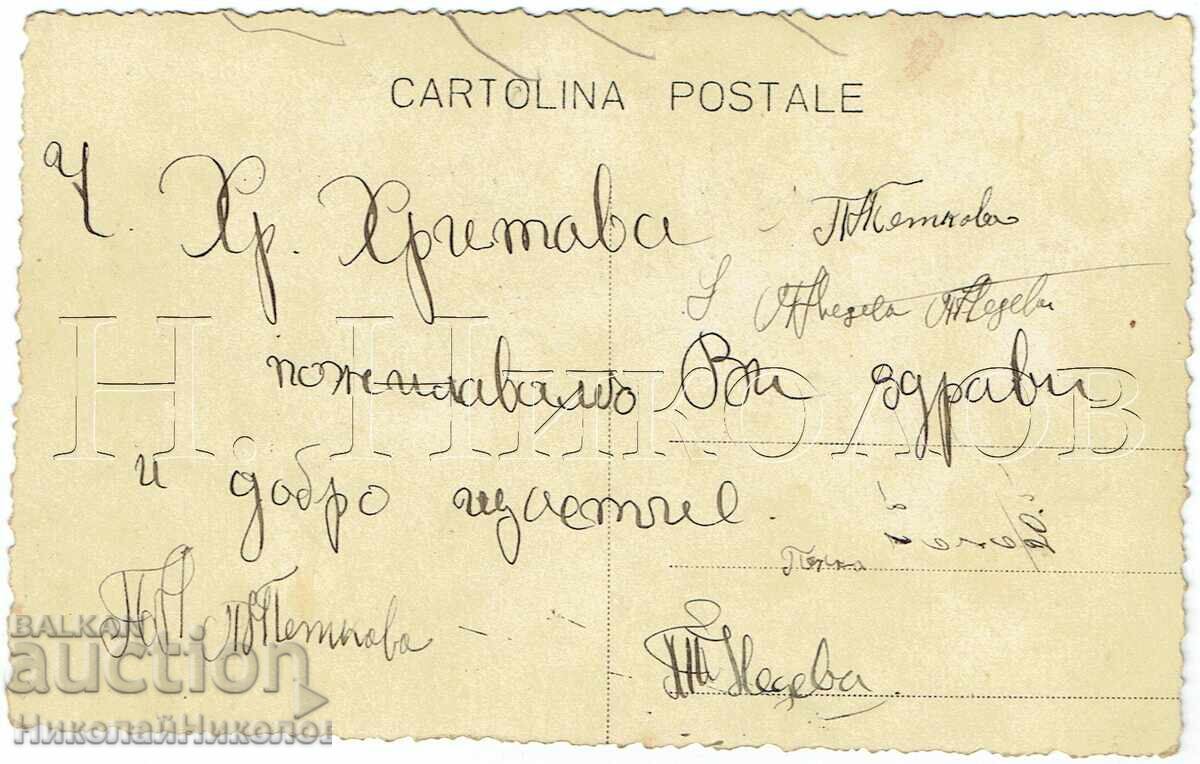 CARTOLINA POSTALE
Ч. Хр. Христова
П Петкова
Недева Недева
пожелавамо Ви здрави
и добро щастие.
Пенка
П. П Петкова
Недева
Н. Николов
BALKAN
auction
НиколайНиколов